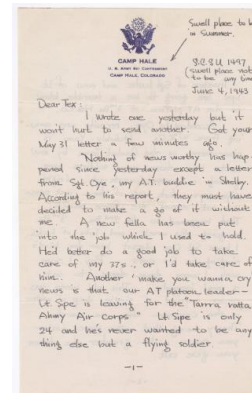 Swell place to be
in Summer.
CAMP HALE
U. S. ARMY
CAMP HALE, COLORADO
S.C.S.U 1497
(swell place not
to be any time
June 4, 1943
Dear Tex:
I wrote one yesterday but it
won't hurt to send another. Got your
May 31 letter a few minutes ago.
Nothing of news worthy has hap-
pened since yesterday except a letter
from Sgt Oye, my A.T. buddie in Shelby.
According to his report, they must have
decided to make a go of it without
me. A new fella has been put
into the 'job' which I used to hold.
He'd better do a good job to take
care of my 37s., or I'd take care of
him. Another 'make you wanna cry'
news is that our AT platoon leader—
Lt. Sipe is leaving for the "Tarra ratta
Ahmy Air Corps" Lt. Sipe is only
24 and he's never wanted to be any
thing else but a flying soldier.
-1-